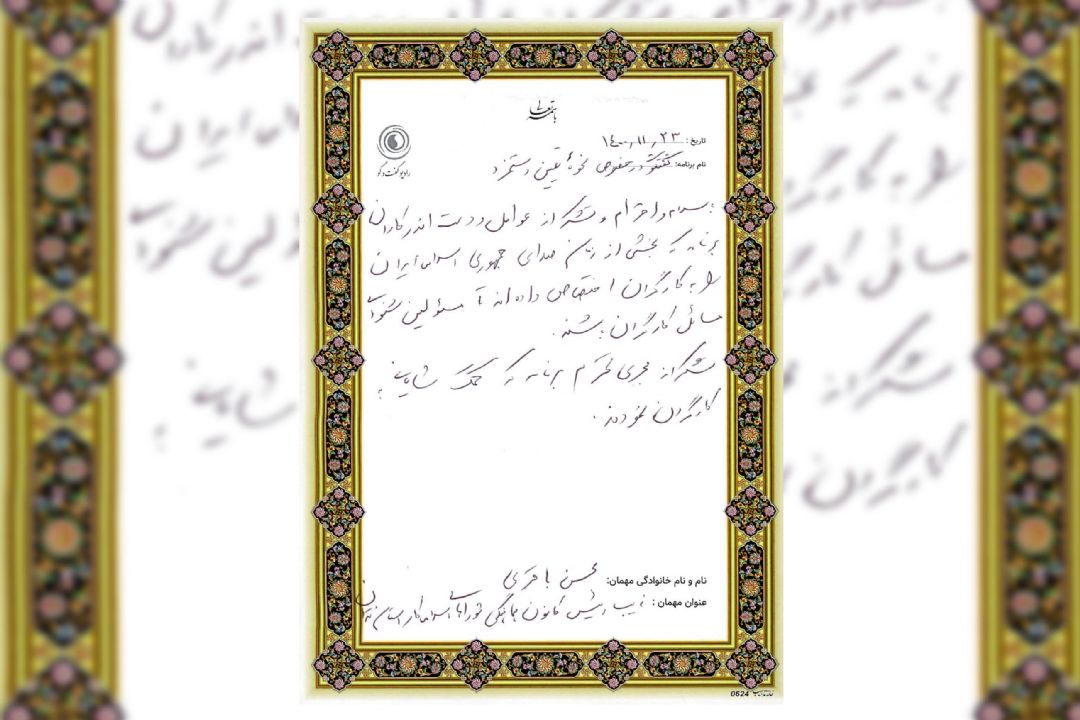 باسمه تعالی
تاریخ: ۱۴۰۰/۱۱/۲۳
رادیو گفت و گو
نام برنامه: گفتگو در خصوص نحوهٔ تعیین دستمزد
با سلام و احترام و تشکر از عوامل و دست اندرکاران
برنامه که بخشی از زمان صدای جمهوری اسلامی ایران
را به کارگران اختصاص داده اند تا مسئولین شنوای
مسائل کارگران باشند.
تشکر از مجری محترم برنامه که کمک شایانی به
کارگران نمودند.
نام و نام خانوادگی مهمان: محسن باقری
عنوان مهمان: نایب رئیس کانون هماهنگی شوراهای اسلامی کار استان تهران
0624